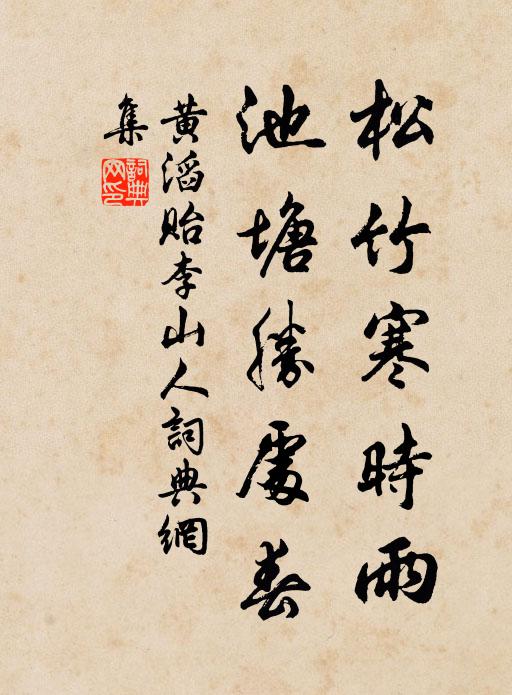 松竹寒時雨
池塘勝處春
黄滔貽李山人詞典網
集
詞典網印